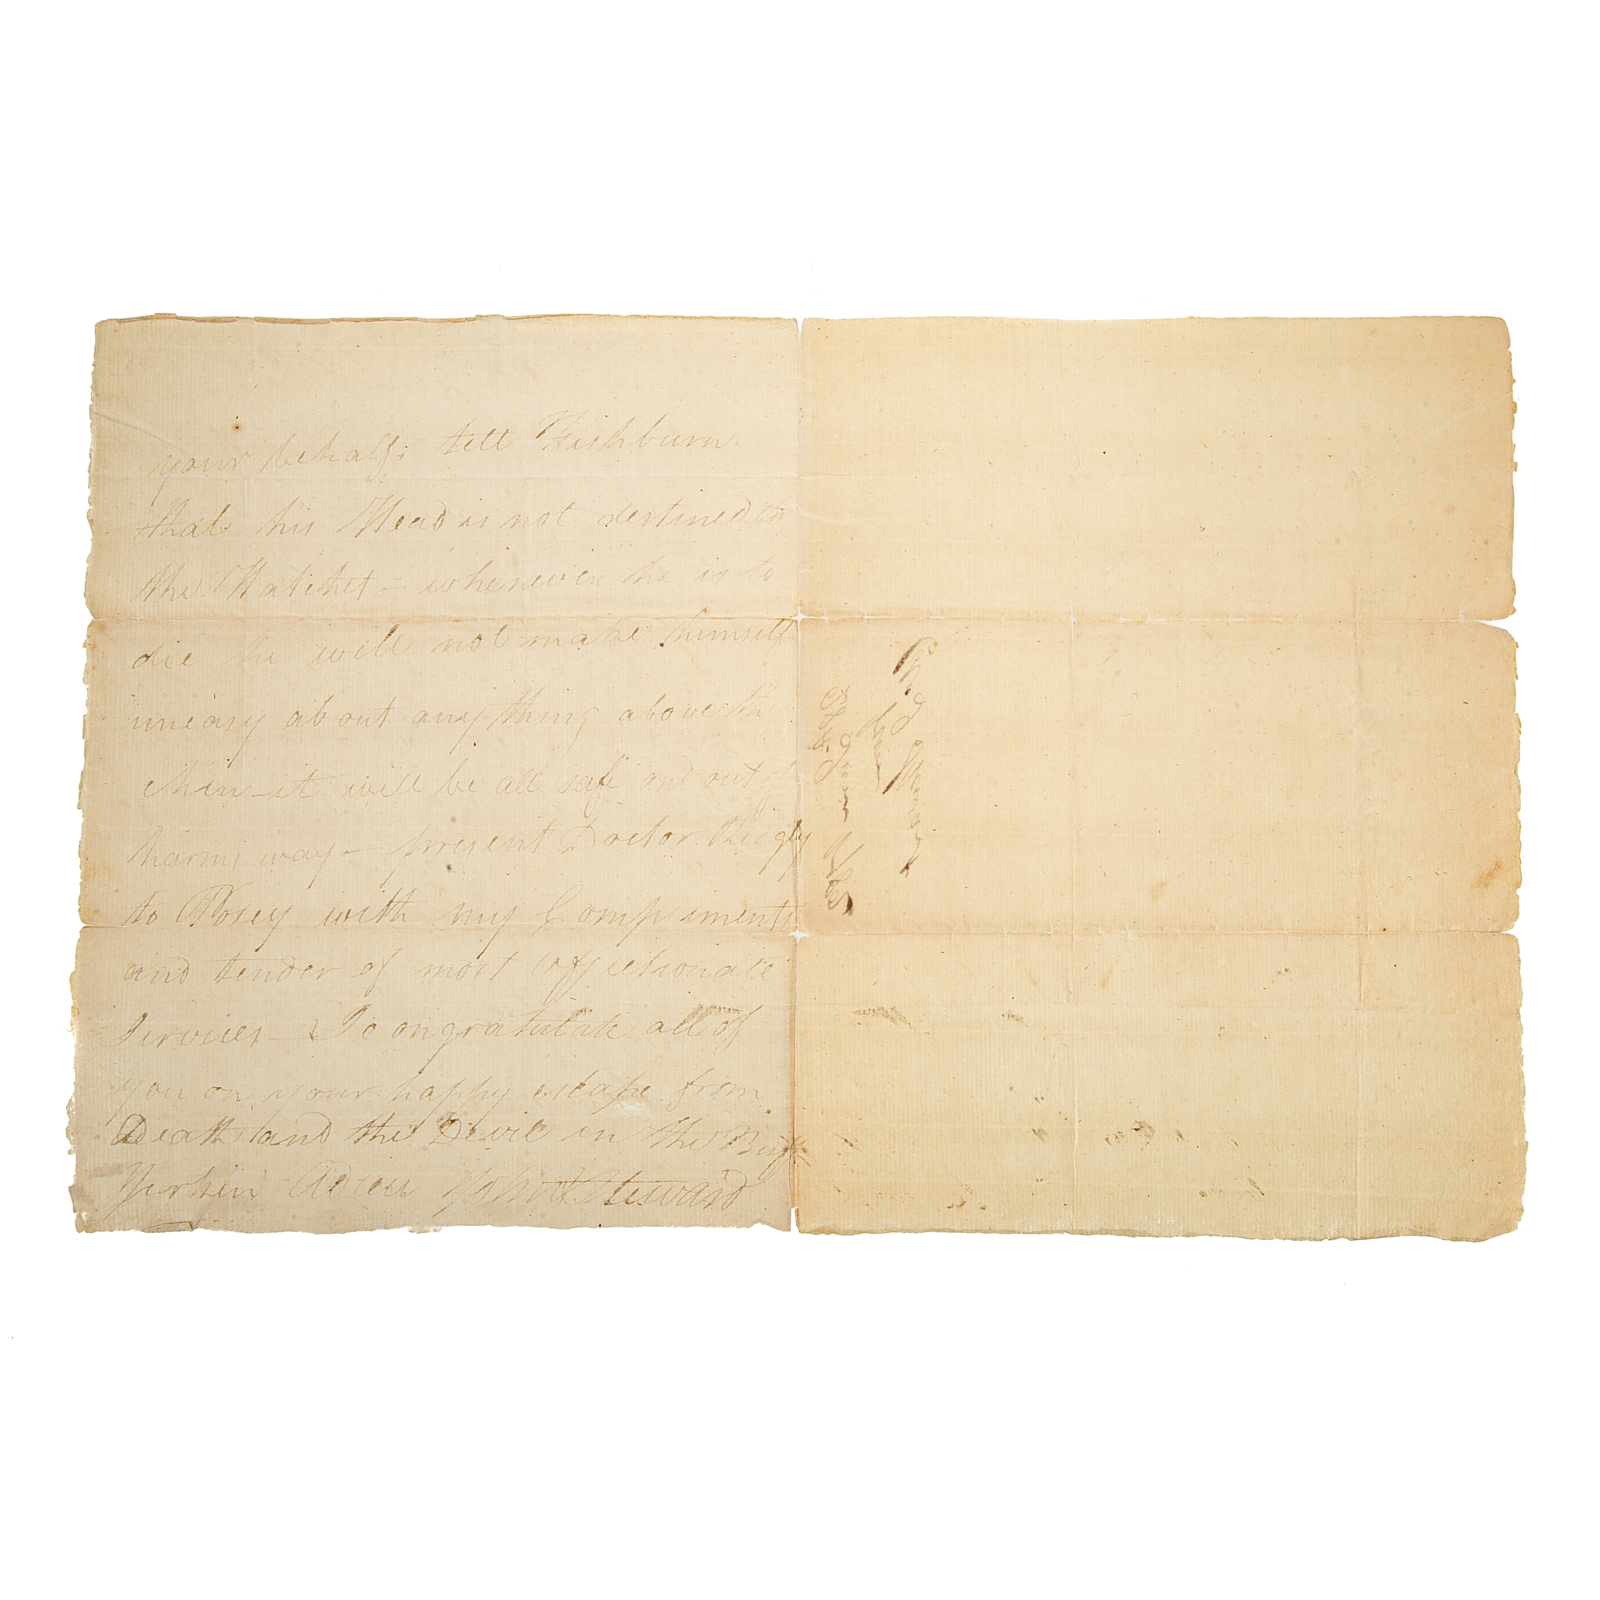 your behalf; tell Fishburn
that his Head is not destined to
the Hatchet - whenever he is to
die he will not make himself
uneasy about any thing above the
Chin - it will be all safe and out of
harms way - present Doctor Ridgly
to Posey with my Compliments
and tender of most affectionate
Services - I Congratulate all of
you on your happy escape from
Death and the Devil in the Buff
Jerkin Adieu John Steward